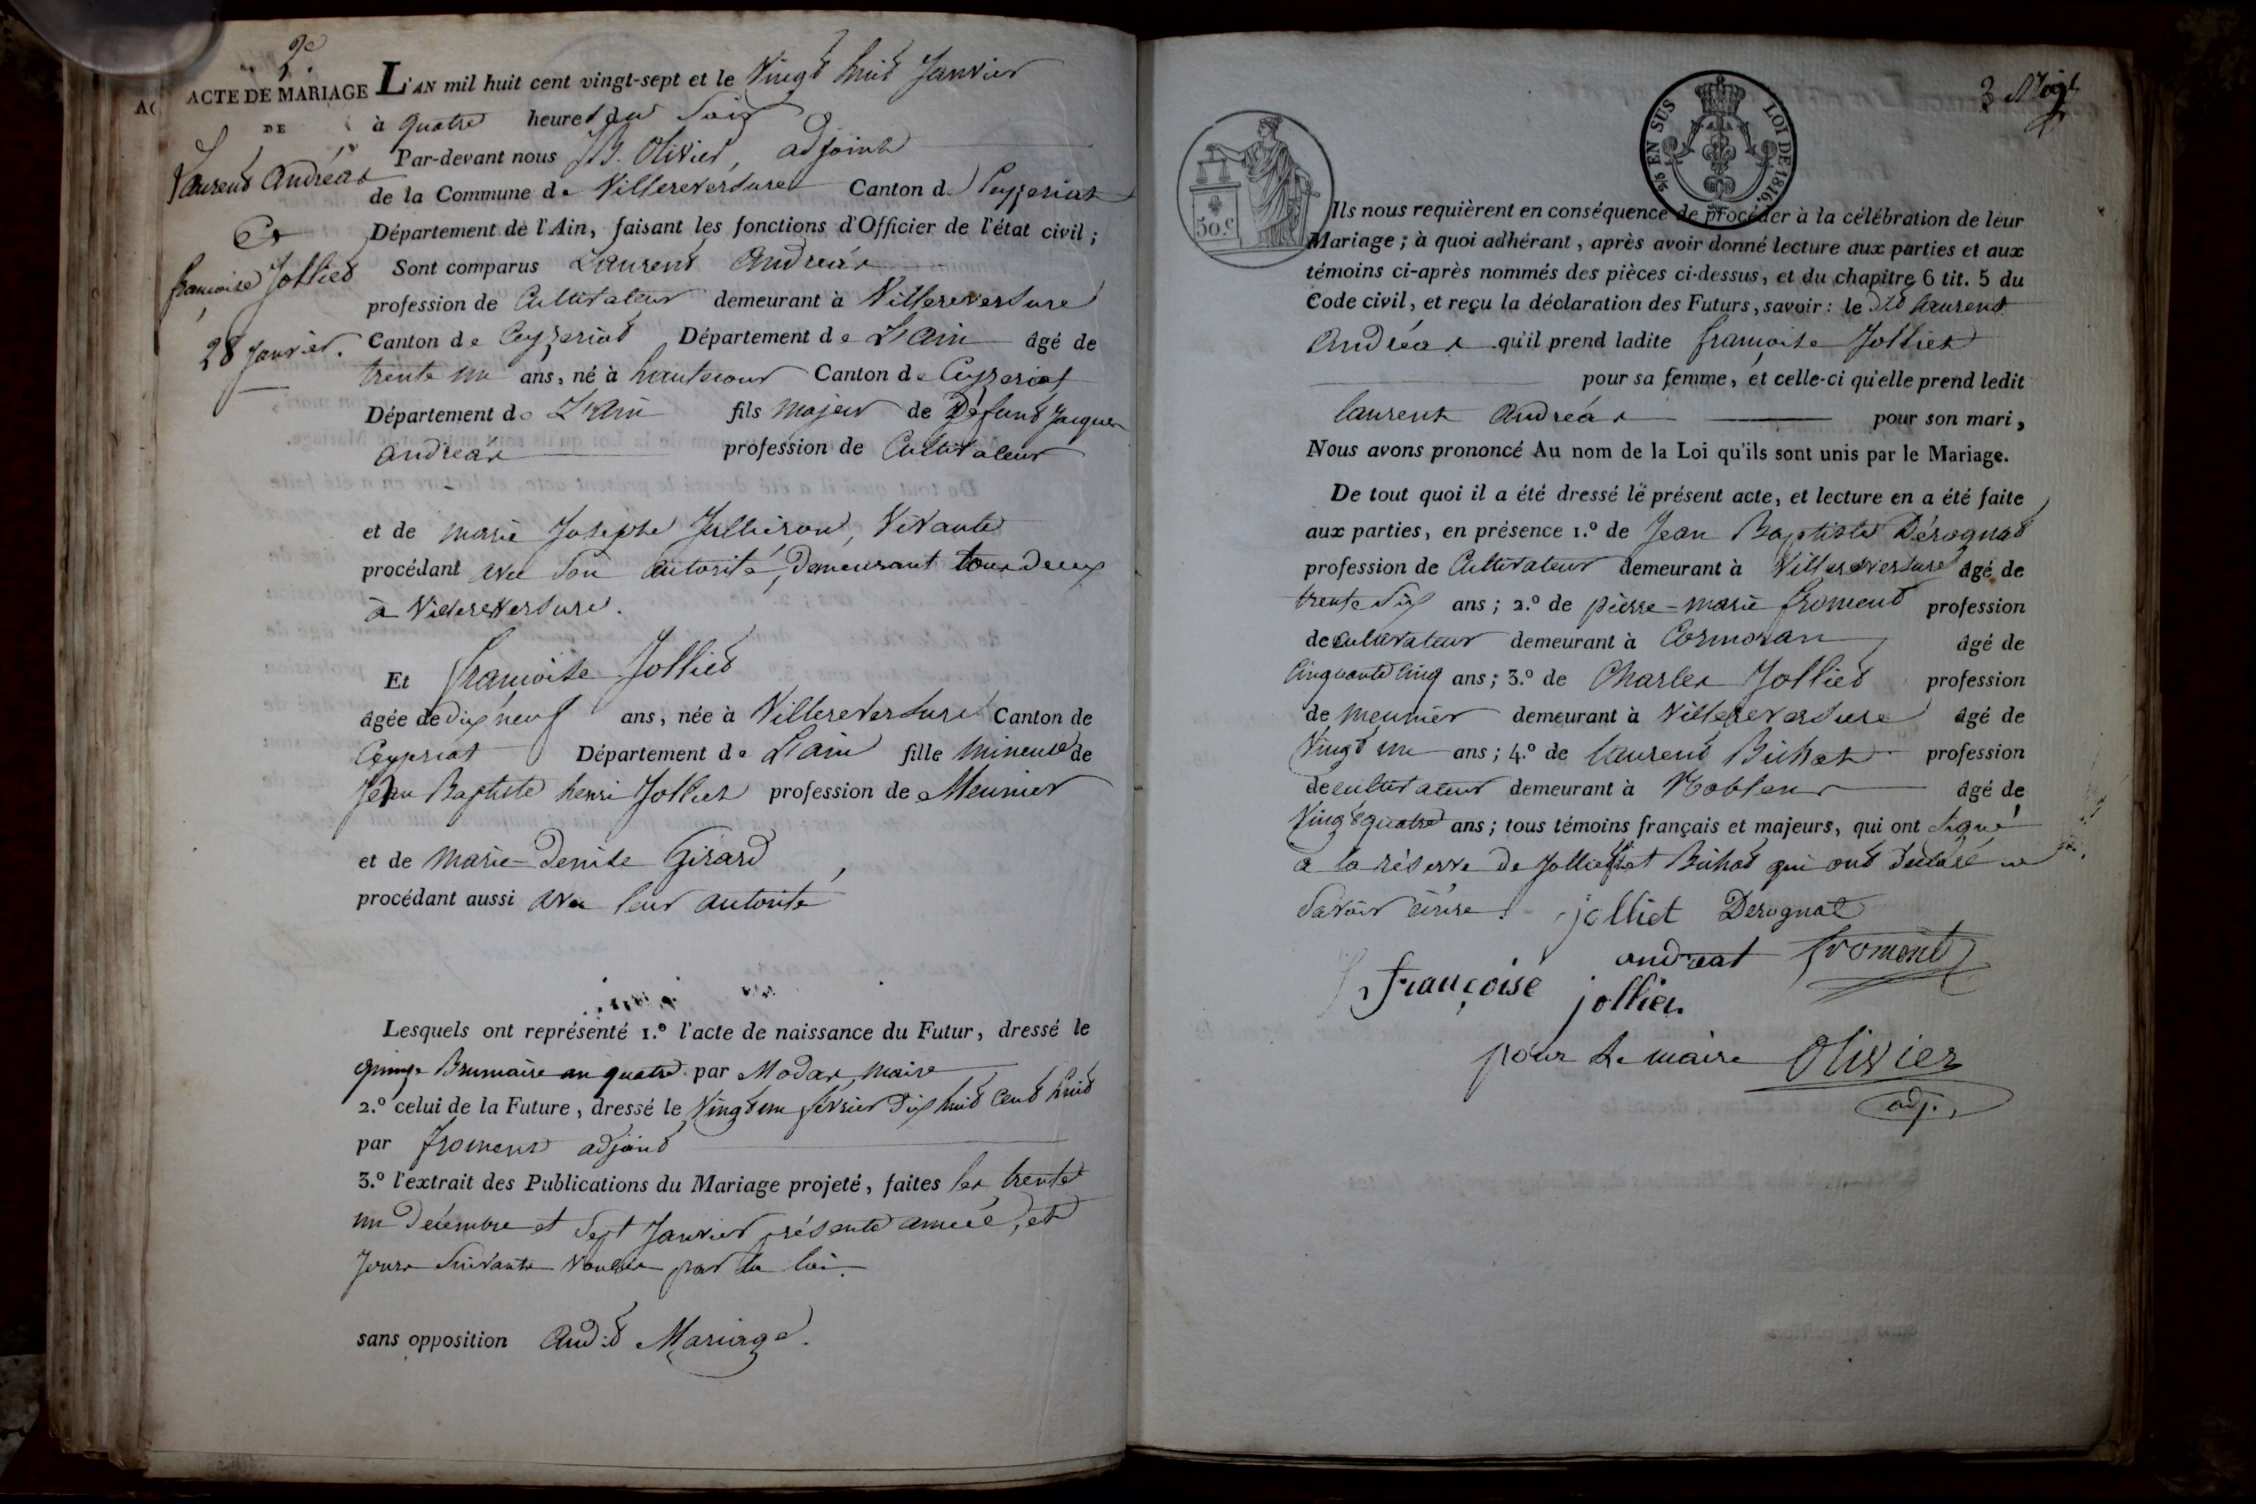 2e
ACTE DE MARIAGE
DE
Laurent Andréas
Et
françoise Jolliet
28 Janvier.
L'AN mil huit cent vingt-sept et le Vingt huit Janvier
à quatre heures du Soir
Par-devant nous JB. Olivier, adjoint
de la Commune de Villereversure Canton de Ceyzeriat
Département de l'Ain, faisant les fonctions d'Officier de l'état civil;
Sont comparus Laurent Andréas
profession de Cultivateur demeurant à Villereversure
Canton de Ceyzeriat Département de L'ain âgé de
trente un ans, né à hautecour Canton de Ceyzeriat
Département de L'ain fils majeur de Défunt Jacques
andréas profession de Cultivateur
et de marie Josephe Jullieron, Vivante
procédant avec son autorité, Demeurant tous deux
à Villereversure.
Et françoise Jolliet
âgée de dix neuf ans, née à Villereversure Canton de
Ceyzeriat Département de L'ain fille mineure de
Jean Baptiste henri Jolliet profession de Meunier
et de Marie-Denise Girard
procédant aussi avec leur autorité
Lesquels ont représenté 1.º l'acte de naissance du Futur, dressé le
quinze Brumaire an quatre par Modas, maire
2.º celui de la Future, dressé le Vingt un février dix huit Cent huit
par froment adjoint
3.º l'extrait des Publications du Mariage projeté, faites les trente
un Décembre et Sept Janvier présente année, et
Jours Suivants voulus par la loi.
sans opposition Aud:t Mariage.
50.C
5/8 EN SUS LOI DE 1816.
3
Ils nous requièrent en conséquence de procéder à la célébration de leur
Mariage; à quoi adhérant, après avoir donné lecture aux parties et aux
témoins ci-après nommés des pièces ci-dessus, et du chapitre 6 tit. 5 du
Code civil, et reçu la déclaration des Futurs, savoir: le dit laurent
Andréas qu'il prend ladite françoise Jolliet
pour sa femme, et celle-ci qu'elle prend ledit
laurent Andréas pour son mari,
Nous avons prononcé Au nom de la Loi qu'ils sont unis par le Mariage.
De tout quoi il a été dressé le présent acte, et lecture en a été faite
aux parties, en présence 1.º de Jean Baptiste Dérognat
profession de Cultivateur demeurant à Villereversure âgé de
trente Six ans; 2.º de pierre-marie froment profession
de cultivateur demeurant à Cormoran âgé de
Cinquante Cinq ans; 3.º de Charles Jolliet profession
de meunier demeurant à Villereversure âgé de
Vingt un ans; 4.º de laurent Bichat profession
de cultivateur demeurant à Noblens âgé de
Vingt quatre ans; tous témoins français et majeurs, qui ont signé
à la réserve de Jolliet et Bichat qui ont déclaré ne
Savoir écrire. jolliet Derognat
andreat froment
françoise jolliet
pour le maire Olivier
adj.